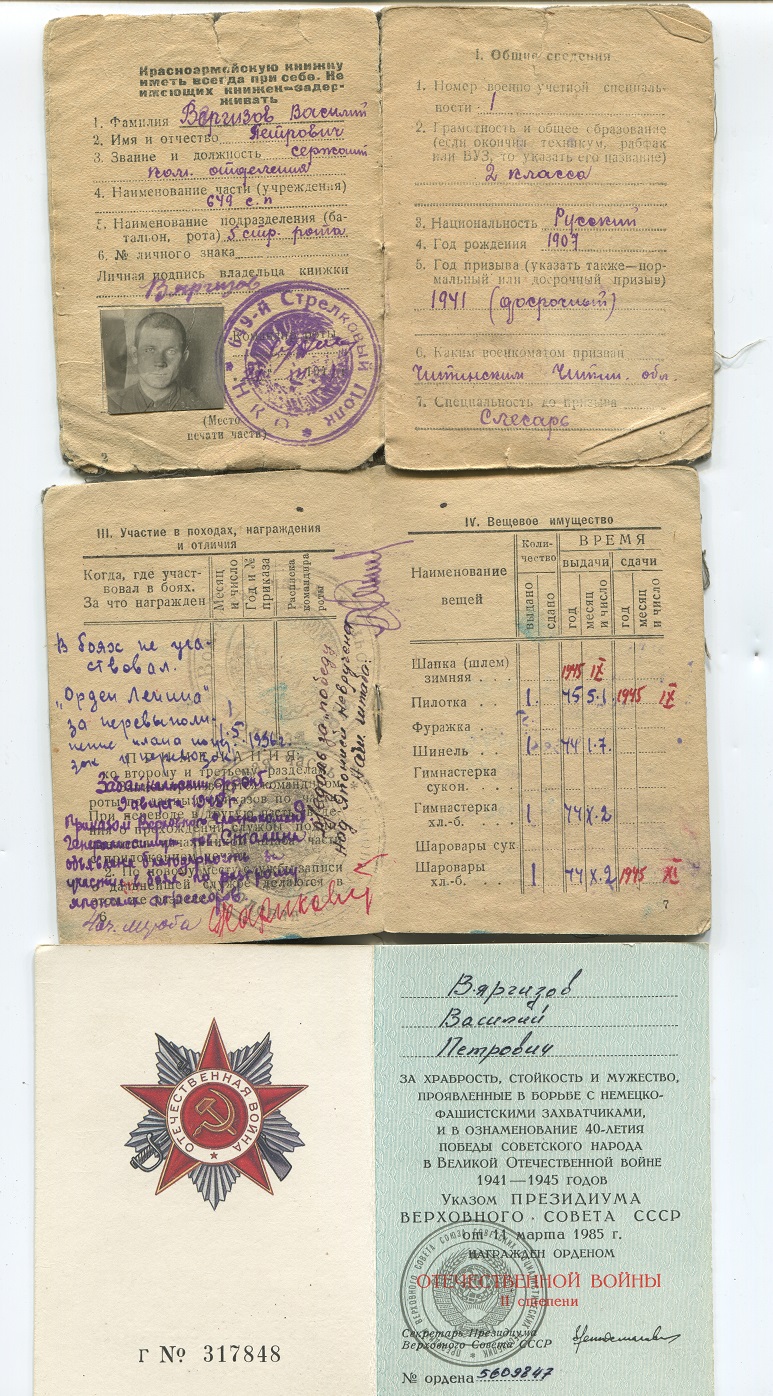 Красноармейскую книжку
иметь всегда при себе. Не
имеющих книжек—задер-
живать
1. Фамилия Вяргизов Василий
2. Имя и отчество Петрович
3. Звание и должность сержант
ком. отделения
4. Наименование части (учреждения)
649 с.п
5. Наименование подразделения (ба-
тальон, рота) 5 стр. рота
6. № личного знака
Личная подпись владельца книжки
Вяргизов
649-й Стрелковый Полк
Н.К.О.
(Место
печати части)
2
I. Общие сведения
1. Номер военно-учетной специаль-
ности 1
2. Грамотность и общее образование
(если окончил техникум, рабфак
или ВУЗ, то указать его название)
2 класса
3. Национальность Русский
4. Год рождения 1907
5. Год призыва (указать также—нор-
мальный или досрочный призыв)
1941 (досрочный)
6. Каким военкоматом призван
Читинским Читин. обл.
7. Специальность до призыва
Слесарь
III. Участие в походах, награждения
и отличия
Когда, где участ-
вовал в боях.
За что награжден
Месяц
и число
Год и №
приказа
Расписка
командира
роты
В боях не уча-
ствовал.
"Орден Ленина"
за перевыпол-
нение плана
1936г.
ПРИМЕЧАНИЯ:
ко второму и третьему разделам
Забайкальский фронт
9 августа 1945
Сталина
объявлена благодарность
японских агрессоров
Медаль за "победу
над Японией" невручена
Нач. штаба:
6
IV. Вещевое имущество
Наименование
вещей
Коли-
чество
ВРЕМЯ
выдачи сдачи
выдано
сдано
год
месяц
и число
год
месяц
и число
Шапка (шлем)
зимняя . . . 1945 IX
Пилотка . . . 1. 45 5.1. 1945 IX
Фуражка . .
Шинель . . . 1. 44 1.7.
Гимнастерка
сукон. . . .
Гимнастерка
хл.-б. . . . 1 44 X.2
Шаровары сук.
Шаровары
хл.-б. . . . 1 44 X.2 1945 XI
7
ОТЕЧЕСТВЕННАЯ ВОЙНА
Г № 317848
Вяргизов
Василий
Петрович
ЗА ХРАБРОСТЬ, СТОЙКОСТЬ И МУЖЕСТВО,
ПРОЯВЛЕННЫЕ В БОРЬБЕ С НЕМЕЦКО-
ФАШИСТСКИМИ ЗАХВАТЧИКАМИ,
И В ОЗНАМЕНОВАНИЕ 40-ЛЕТИЯ
ПОБЕДЫ СОВЕТСКОГО НАРОДА
В ВЕЛИКОЙ ОТЕЧЕСТВЕННОЙ ВОЙНЕ
1941—1945 ГОДОВ
УКАЗОМ ПРЕЗИДИУМА
ВЕРХОВНОГО СОВЕТА СССР
от 11 марта 1985 г.
НАГРАЖДЕН ОРДЕНОМ
ОТЕЧЕСТВЕННОЙ ВОЙНЫ
II степени
Секретарь Президиума
Верховного Совета СССР
№ ордена 5609847